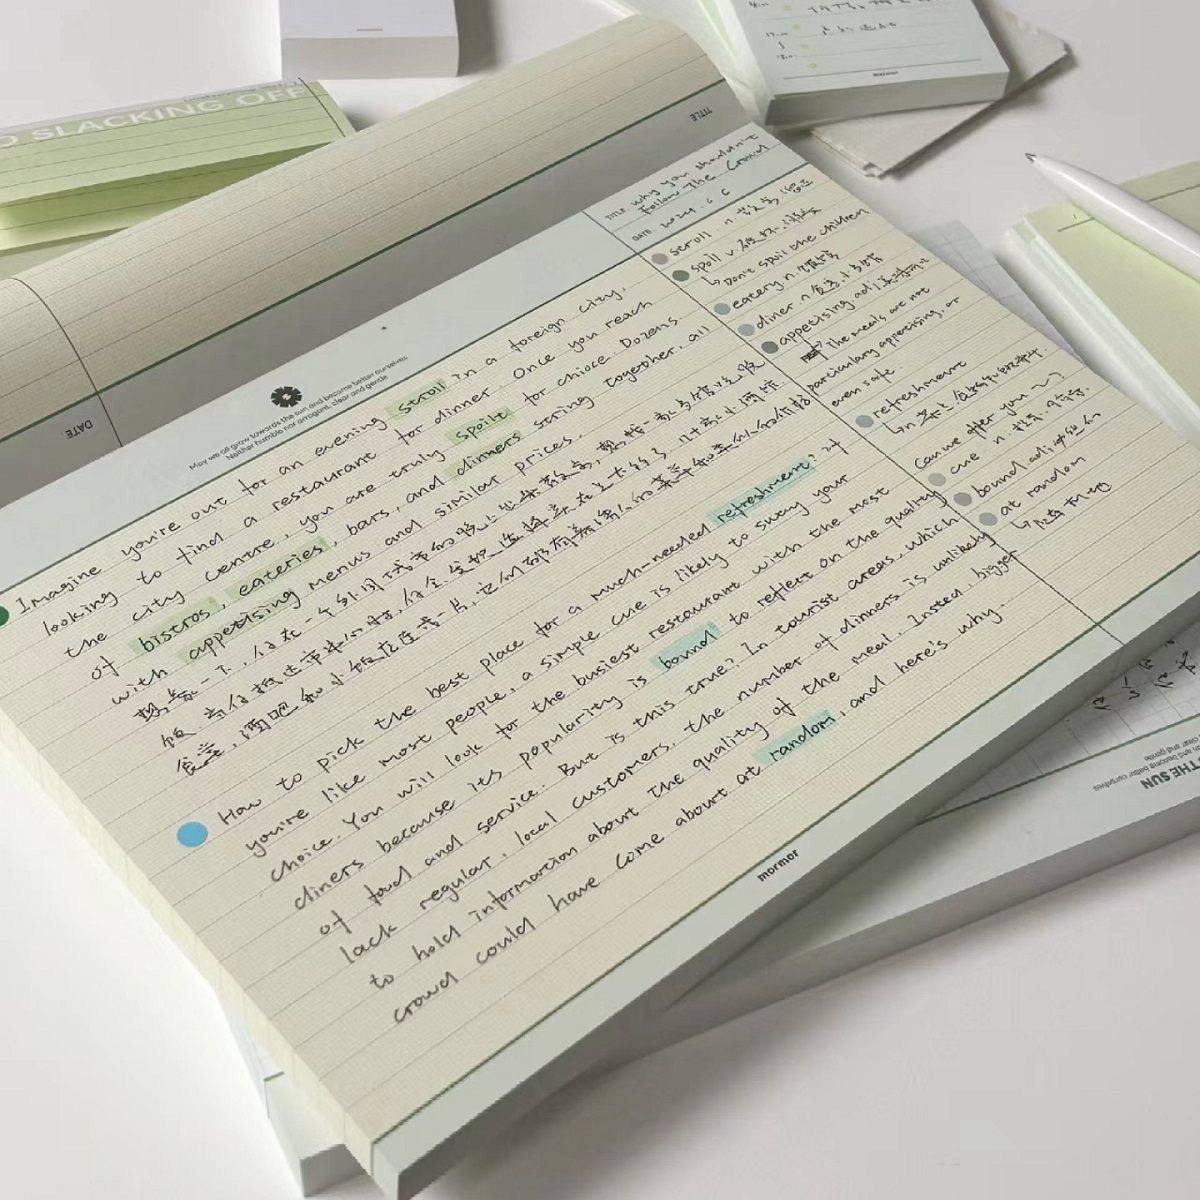 O SLACKING OFF
mormor
TITLE
DATE
TITLE why you shouldn't
Follow The Crowd
DATE 2024. 6
May we all grow towards the sun and become better ourselves
Neither humble nor arrogant, clear and gentle
Imagine you're out for an evening stroll in a foreign city,
looking to find a restaurant for dinner. Once you reach
the city centre, you are truly spoilt for choice. Dozens
of bistros, eateries, bars, and dinners string together, all
with appetising menus and similar prices.
想象一下,你在一个外国城市的晚上出来散步,想找一家餐馆吃晚
饭,当你抵达市中心时,你会发现选择
食堂,酒吧和小饭店连成一片,它们都有着诱人的菜单和类似的价格
How to pick the best place for a much-needed refreshment? If
you're like most people, a simple cue is likely to sway your
choice. You will look for the busiest restaurant with the most
diners because its popularity is bound to reflect on the quality
of food and service. But is this true? In tourist areas, which
lack regular, local customers, the number of dinners is unlikely
to hold information about the quality of the meal. Insted, bigger
crowd could have come about at random, and here's why.
scroll n. 散步
spoil v. 破坏
↳ Don't spoil the children
eatery n. 饭馆
diner n. 食客,小餐馆
appetising adj.
The meals are not
particulary appetising, or
even safe.
refreshment
↳ n.
Can we offer you ~ ?
cue n.
bound adj.
at random
↳ 随机
mormor
THE SUN